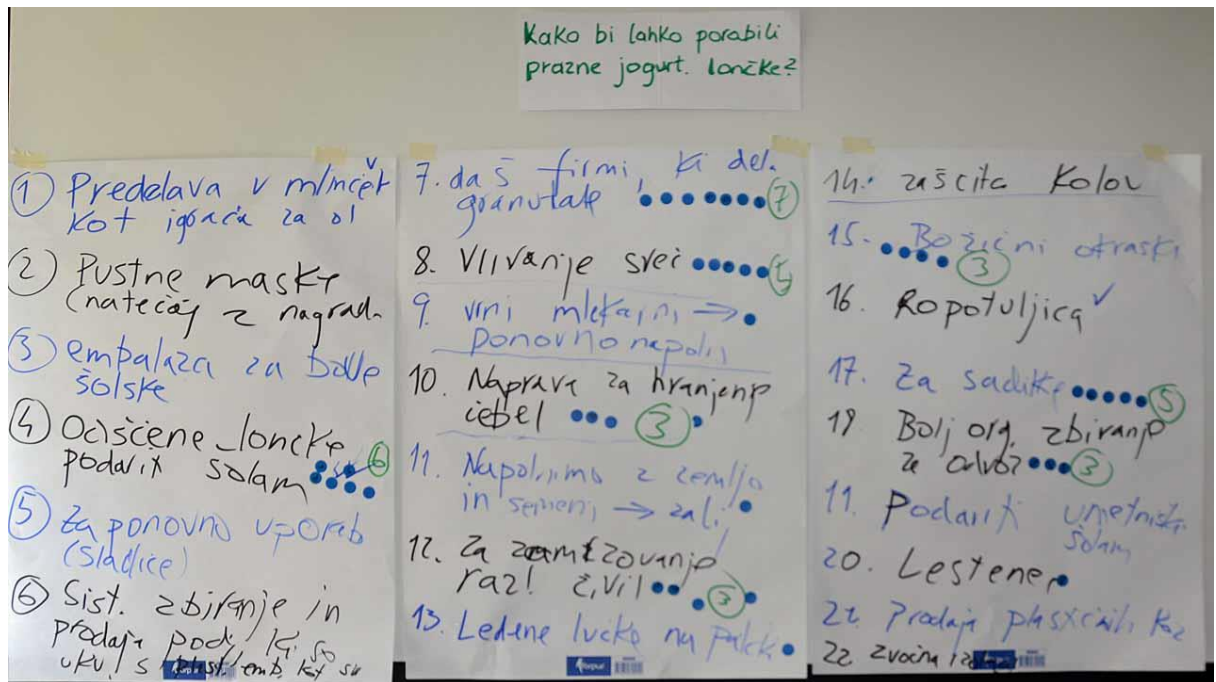 Kako bi lahko porabili
prazne jogurt. lončke?
1 Predelava v
kot igrača za
2 Pustne maske
(natečaj z nagrad.
3 embalaža za
šolske
4 Očiščene lončke
podarit šolam 6
5 Za ponovno uporab
(sladice)
6 Sist. zbiranje in
prodaja podj. ki so
s plast. emb.
7. daš firmi, ki del.
granulate 7
8. Vlivanje sveč 5
9. vrni mlekarni →
ponovno
10. Naprava za hranjenje
čebel 3
11. Napolnimo z zemljo
in semeni →
12. Za zamrzovanje
živil 3
13. Ledene lučke na
14. zaščita kolov
15. Božični okraski
3
16. Ropotuljica ✓
17. Za sadike 5
Bolj org. zbiranje
za odvoz 3
11. Podarit umetnišk.
šolam
20.
Prodaja
22. zvočna